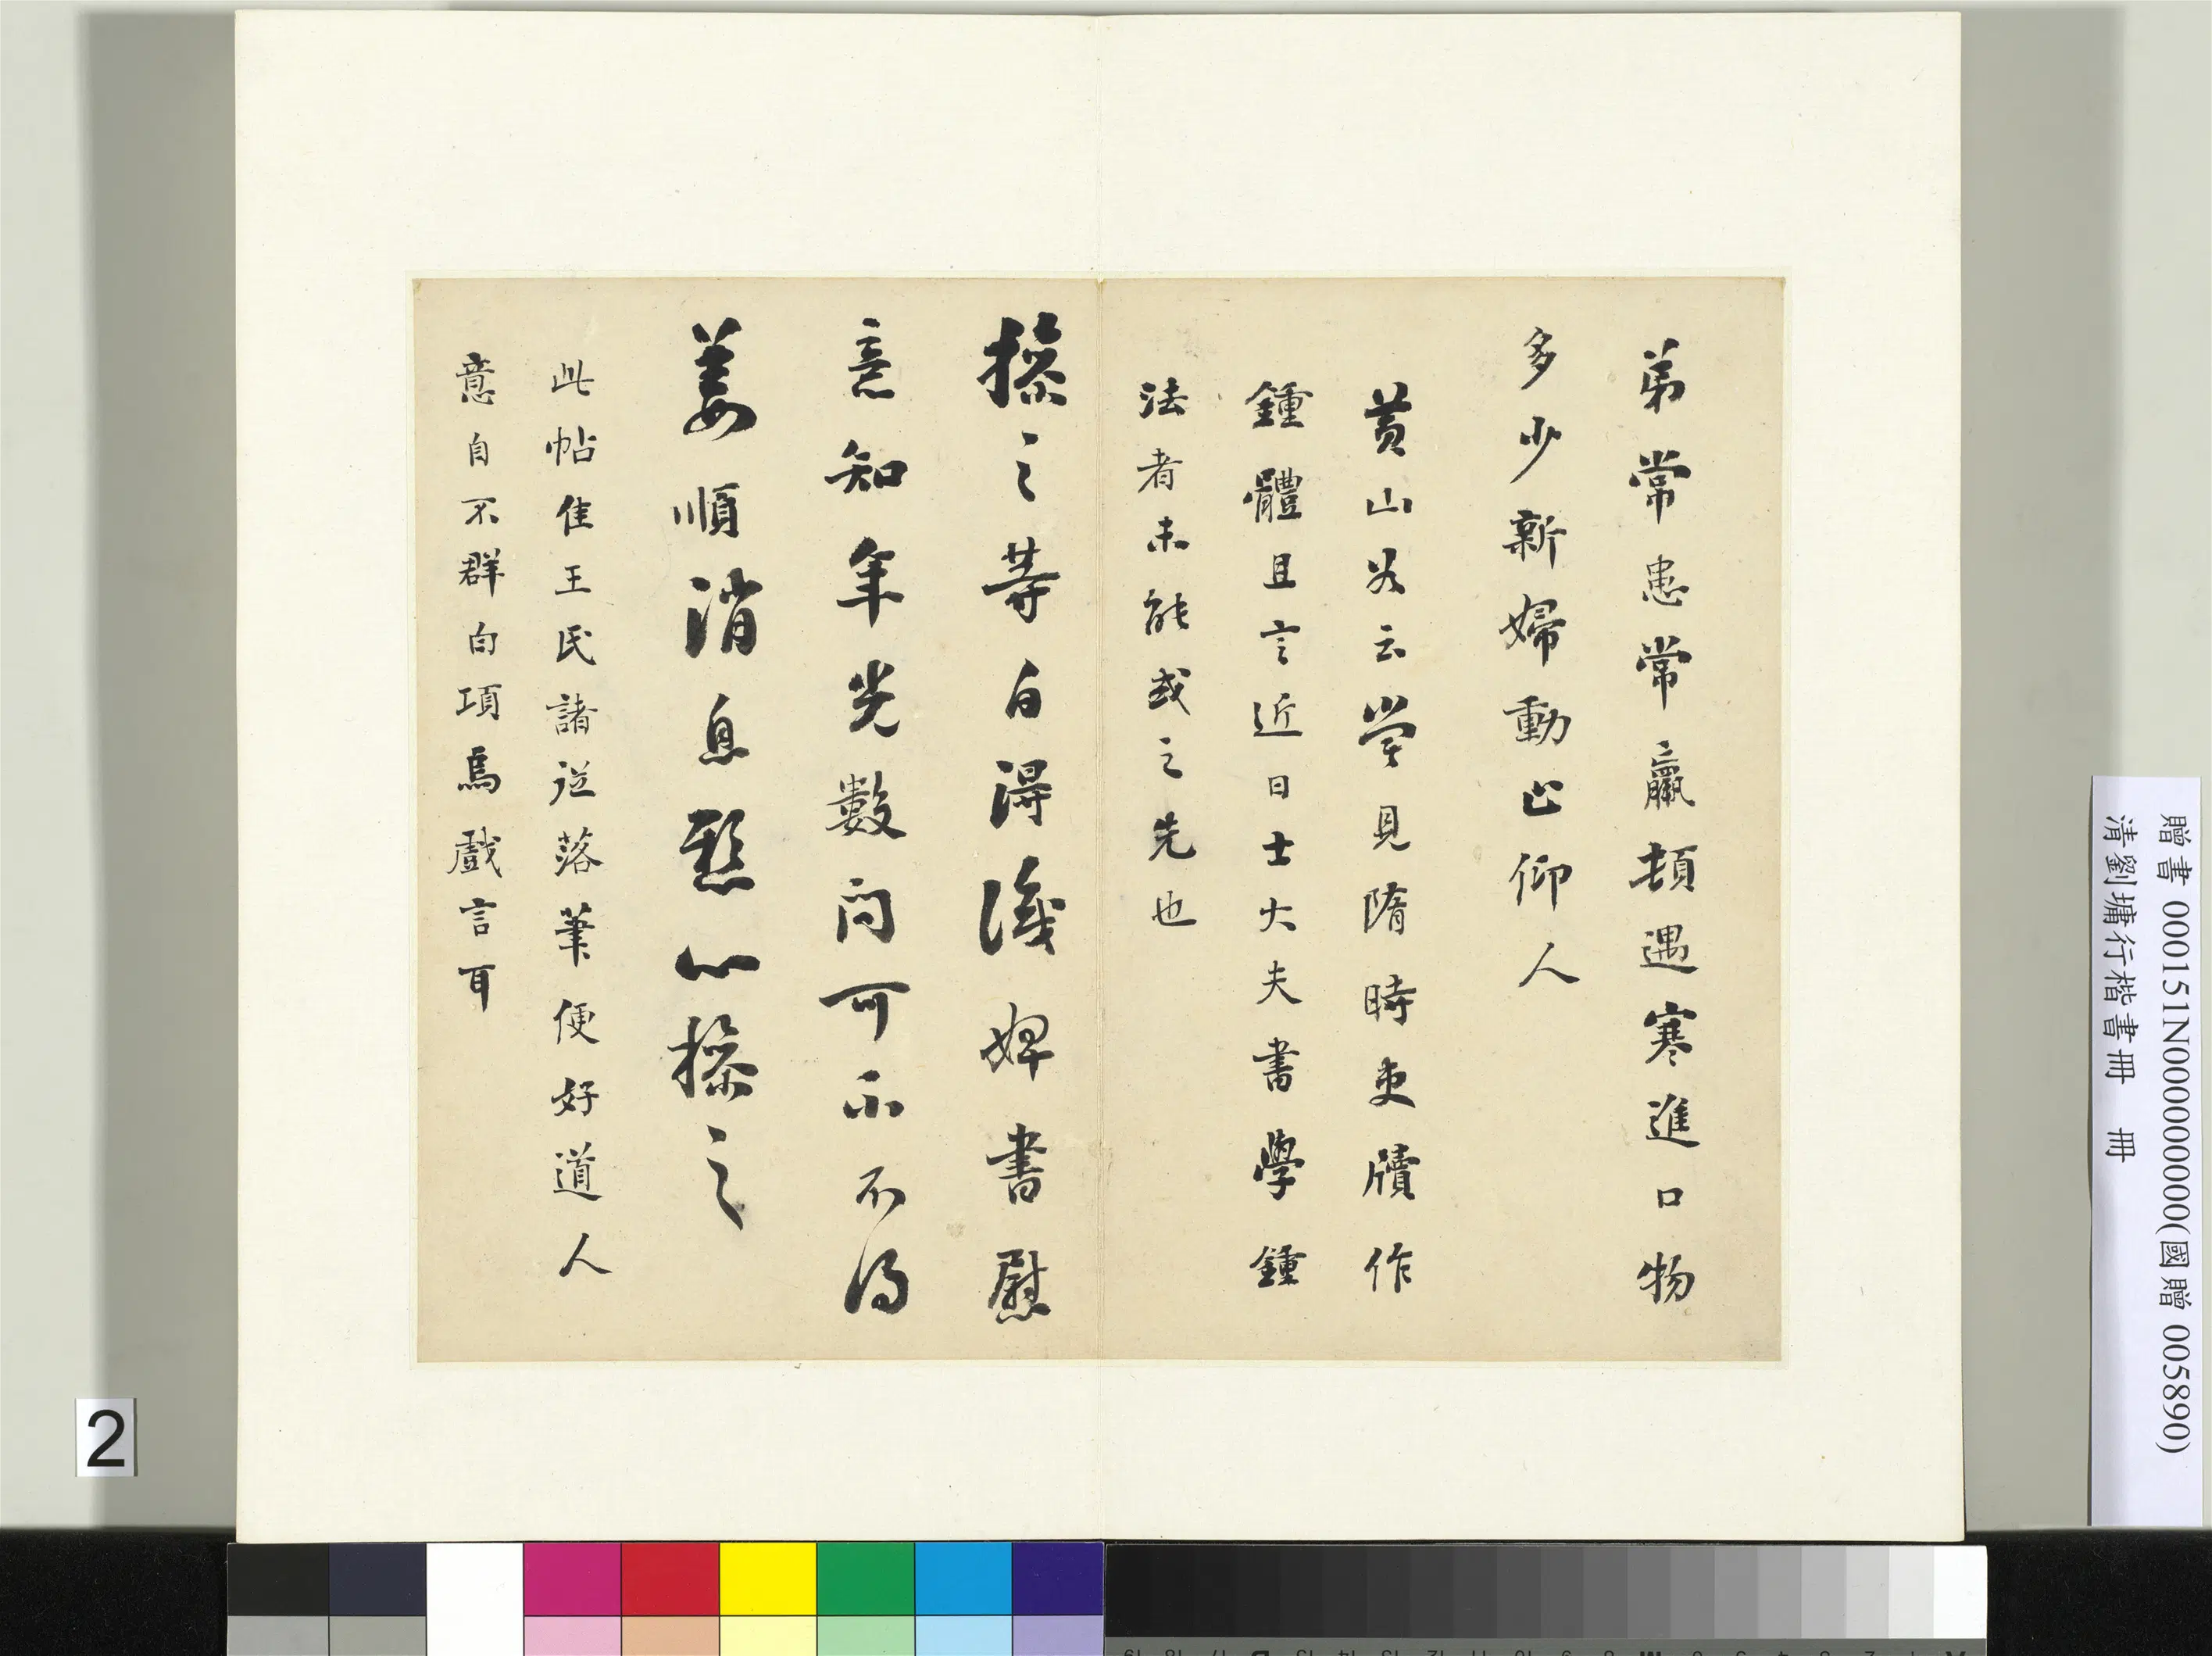 弟常患常羸頓遇寒進口物
多少新婦動止仰人
黃山谷云嘗見隋時吏牘作
鍾體且言近日士大夫書學鍾
法者未能或之先也
操之等白得識婢書慰
意知年光數問可不不得
姜順消息懸心操之
此帖佳王氏諸從落筆便好道人
意自不群白項烏戲言耳
贈書 000151N000000000(國贈 005890)
清劉墉行楷書冊 冊
2